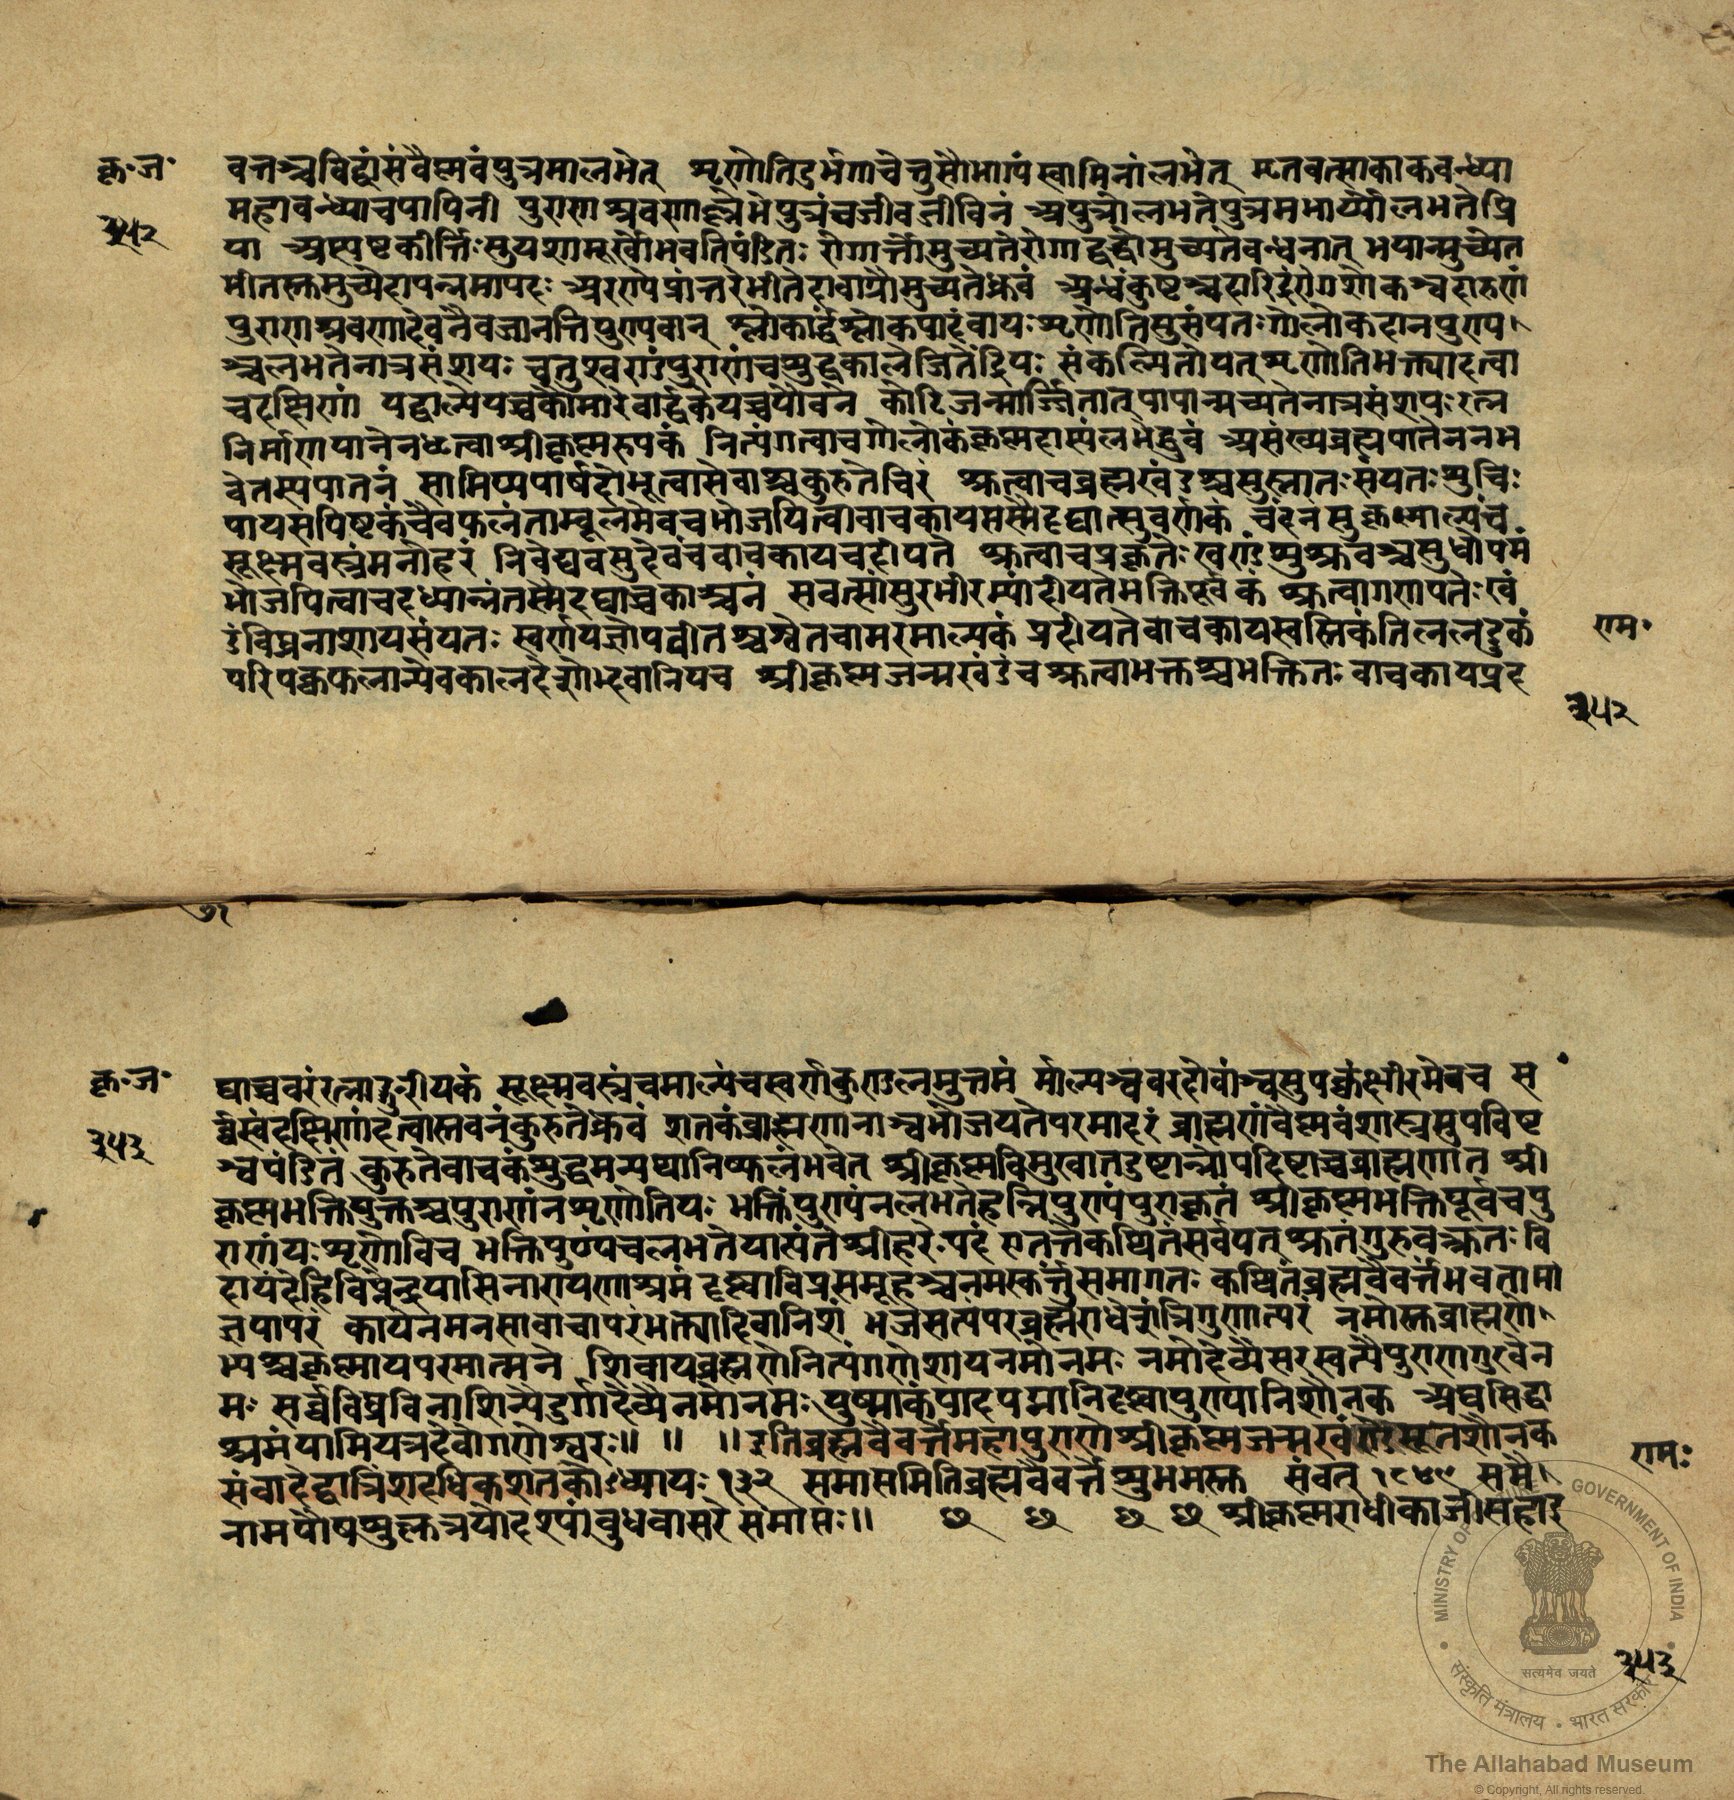 कृ॰ज॰
३५२
वन्तञ्चविद्वांसंवैष्णवंपुत्रमालभेत् शृणोतिदुर्भगाचेत्तुसौभाग्यंस्वामिनांलभेत् मृतवत्साकाकवन्ध्या
महावन्ध्याचपापिनी पुराणश्रवणाल्लेभेपुत्रंचजीवजीविनं अपुत्रोलभतेपुत्रमभार्य्योलभतेप्रि
या अस्पष्टकीर्त्तिःसुयशामूर्खोभवतिपंडितः रोगार्त्तोमुच्यतेरोगाद्वद्धोमुच्यतेवन्धनात् भयान्मुच्येत
भीतस्तुमुच्येतापन्नमापदः अरण्येप्रांन्तरेभीतेदावाग्नौमुच्यतेध्रुवं अन्धंकुष्टञ्चदारिद्रंरोगशोकञ्चदारुणं
पुराणश्रवणादेवनैवजानन्तिपुण्यवान् श्लोकार्द्धंश्लोकपादंवायःशृणोतिसुसंयतःगोलोकदानपुण्य
ञ्चलभतेनात्रसंशयः चतुःखण्डंपुराणंचशुद्धकालेजितेंद्रियः संकल्पितोयत्शृणोतिभक्त्यादत्वा
चदक्षिणां यद्वाल्येयच्चकौमारेवार्द्धकेयच्चयौवने कोटिजन्मार्ज्जितात्पापान्मुच्यतेनात्रसंशयः रत्न
निर्माणयानेनधृत्वाश्रीकृष्णरुपकं नित्यंगत्वाचगोलोकंकृष्णदास्यंलभेद्ध्रुवं असंख्यब्रह्मपातेननभ
वेतस्यपातनं सामिप्यपार्षदोभूत्वासेवाञ्चकुरुतेचिरं श्रुत्वाचब्रह्मखंडञ्चसुस्नातःसंयतःशुचिः
पायसपिष्टकंचैवफलंताम्बूलमेवचभोजयित्वावाचकायतस्मैदद्यात्सुवर्णकं चंदनसुक्लमाल्यंच
सूक्ष्मवस्त्रंमनोहरं निवेद्यवसुदेवंचवाचकायचदीयते श्रुत्वाचप्रकृतेःखण्डंसुश्रवञ्चसुधोपमं
भोजयित्वाचदध्यान्नंतस्मैदद्याच्चकाञ्चनं सवत्सांसुरभींरम्यांदीयतेभक्तिपूर्वकं श्रुत्वागणपतेःखं
डंविघ्ननाशायसंयतः स्वर्णयज्ञोपवीतञ्चश्वेतचामरमाल्यकं प्रदीयतेवाचकायस्वस्तिकंतिललड्डुकं
परिपक्वफलान्येवकालदेशोद्भवानियच श्रीकृष्णजन्मखंडंचश्रुत्वाभक्तश्चभक्तितः वाचकायप्रद
राम॰
३५२
कृ॰ज॰
३५३
द्याच्चवरंरत्नाङ्गुरीयकं सूक्ष्मवस्त्रंचमाल्यंचस्वर्णकुण्डलमुत्तमं माल्यञ्चवरदोलांञ्चसुपक्वंक्षीरमेवच स
र्व्वस्वंदक्षिणांदत्वास्तवनंकुरुतेध्रुवं शतकंब्राह्मणानाञ्चभोजयतेपरमादरं ब्राह्मणंवैष्णवंशास्त्रसुपविष्ट
ञ्चपंडितं कुरुतेवाचकंशुद्धमन्यथानिष्फलंभवेत् श्रीकृष्णविमुखातदुष्टान्नोपदिष्टाच्चब्राह्मणात् श्री
कृष्णभक्तियुक्तञ्चपुराणंनशृणोतियः भक्तिंपुण्यंनलभतेहन्तिपुण्यंपुराकृतं श्रीकृष्णभक्तिपूर्वंचपु
राणंयःशृणोविच भक्तिपुण्यंचलभतेयात्यंतेश्रीहरेःपदं एतत्तेकथितंसर्वंयत्श्रुतंगुरुवक्त्रतःवि
दायंदेहिविप्रेन्द्रयासिनारायणाश्रमं दृष्ट्वाविप्रसमूहञ्चनमस्कर्त्तुंसमागतः कथितंब्रह्मवैवर्त्तंभवतामा
ज्ञयापरं कायेनमनसावाचापरंभक्त्यादिवानिशं भजेसत्यंपरंब्रह्मराधेशंत्रिगुणात्परं नमोस्तुब्राह्मणे
भ्यश्चकृष्णायपरमात्मने शिवायब्रह्मणेनित्यंगणेशायनमोनमः नमोदेव्यैसरस्वत्यैपुराणगुरवेन
मः सर्व्वविघ्नविनाशिन्यैदुर्गादेव्यैनमोनमः युष्माकंपादपद्मानिदृष्ट्वापुण्यानिशौनक अद्यसिद्धा
श्रमंयामियत्रदेवोगणेश्वरः॥ ॥ ॥इतिब्रह्मवैवर्त्तेमहापुराणेश्रीकृष्णजन्मखंण्डेसूतशौनक
संवादेद्वात्रिंशदधिकशतकोऽध्यायः१३२ समाप्तमितिब्रह्मवैवर्त्तं शुभमस्तु संवत् समै
नामपौषशुक्लत्रयोदश्यांबुधवासरे समाप्तः॥ छ छ छ छ श्रीकृष्णराधीकाजीसहाइ
राम॰
३५३
MINISTRY OF GOVERNMENT OF INDIA
सत्यमेव जयते
संस्कृति मंत्रालय • भारत सरकार
The Allahabad Museum
© Copyright, All rights reserved.